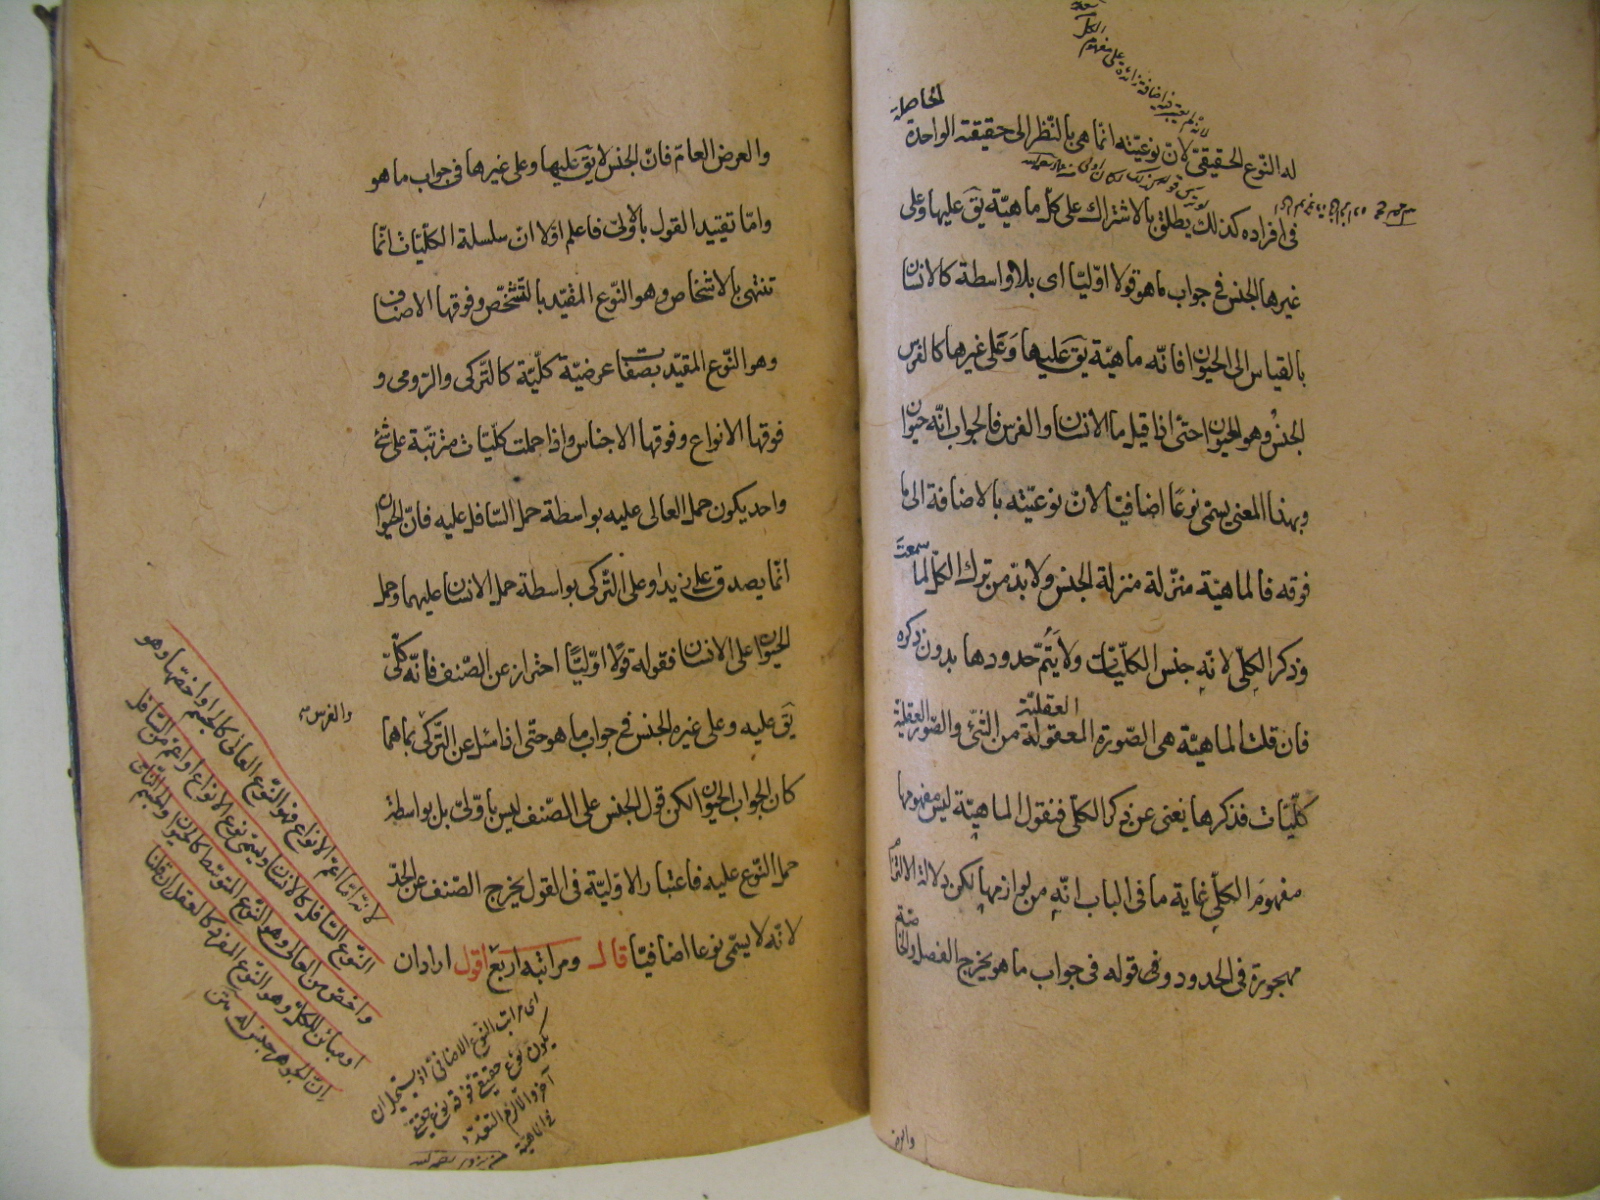 له النوع الحقيقى لان نوعيته انما هى بالنظر الى حقيقته الواحدة
الحاصلة
فى افراده كذلك يطلق بالاشتراك على كل ماهية يق عليها وعلى
غيرها الجنس فى جواب ما هو قولا اوليا اى بلا واسطة كالانسان
بالقياس الى الحيوان فانه ماهية يق عليها وعلى غيرها كالفرس
الجنس وهو الحيوان حتى اذا قيل ما الانسان والفرس فالجواب انه حيوان
وبهذا المعنى يسمى نوعا اضافيا لان نوعيته بالاضافة الى ما
فوقه فالماهية منزلة منزلة الجنس ولا بد من ترك الكل لما سمعت
وذكر الكلى لانه جنس الكليات ولا يتم حدودها بدون ذكره
فان قلت الماهية هى الصورة المعقولة من الشئ والصور العقلية
العقلية
كليات فذكرها يغنى عن ذكر الكلى فنقول الماهية ليس مفهومها
مفهوم الكلى غاية ما فى الباب انه من لوازمها لكن دلالة الالتزام
مهجورة فى الحدود وفى قوله فى جواب ما هو يخرج الفصل والخاصة
والعرض
والعرض العام فان الجنس لا يق عليها وعلى غيرها فى جواب ما هو
واما تقييد القول بالاولى فاعلم اولا ان سلسلة الكليات انما
تنتهى بالاشخاص وهو النوع المقيد بالتشخص وفوقها الاصناف
وهو النوع المقيد بصفات عرضية كلية كالتركى والرومى و
فوقها الانواع وفوقها الاجناس واذا حملت كليات مترتبة على شئ
واحد يكون حمل العالى عليه بواسطة حمل السافل عليه فان الحيوان
انما يصدق على زيد وعلى التركى بواسطة حمل الانسان عليهما وحمل
الحيوان على الانسان فقوله قولا اوليا احتراز عن الصنف فانه كلى
يق عليه وعلى غيره الجنس فى جواب ما هو حتى اذا سئل عن التركى بما هما
والفرس
كان الجواب الحيوان لكن قول الجنس على الصنف ليس باولى بل بواسطة
حمل النوع عليه فاعتبار الاولية فى القول يخرج الصنف عن الحد
لانه لا يسمى نوعا اضافيا قال ومراتبه اربع اقول اراد ان
لانه اما اعم الانواع فهو النوع العالى كالجسم او اخصها وهو
النوع السافل كالانسان ويسمى نوع الانواع او اعم من السافل
واخص من العالى وهو النوع المتوسط كالحيوان والجسم النامى
او مباين للكل وهو النوع المفرد كالعقل ان قلنا
ان الجوهر جنس له متن
اى مراتب النوع الاضافى اذ يستحيل ان
يكون نوع حقيقى فوقه نوع حقيقى